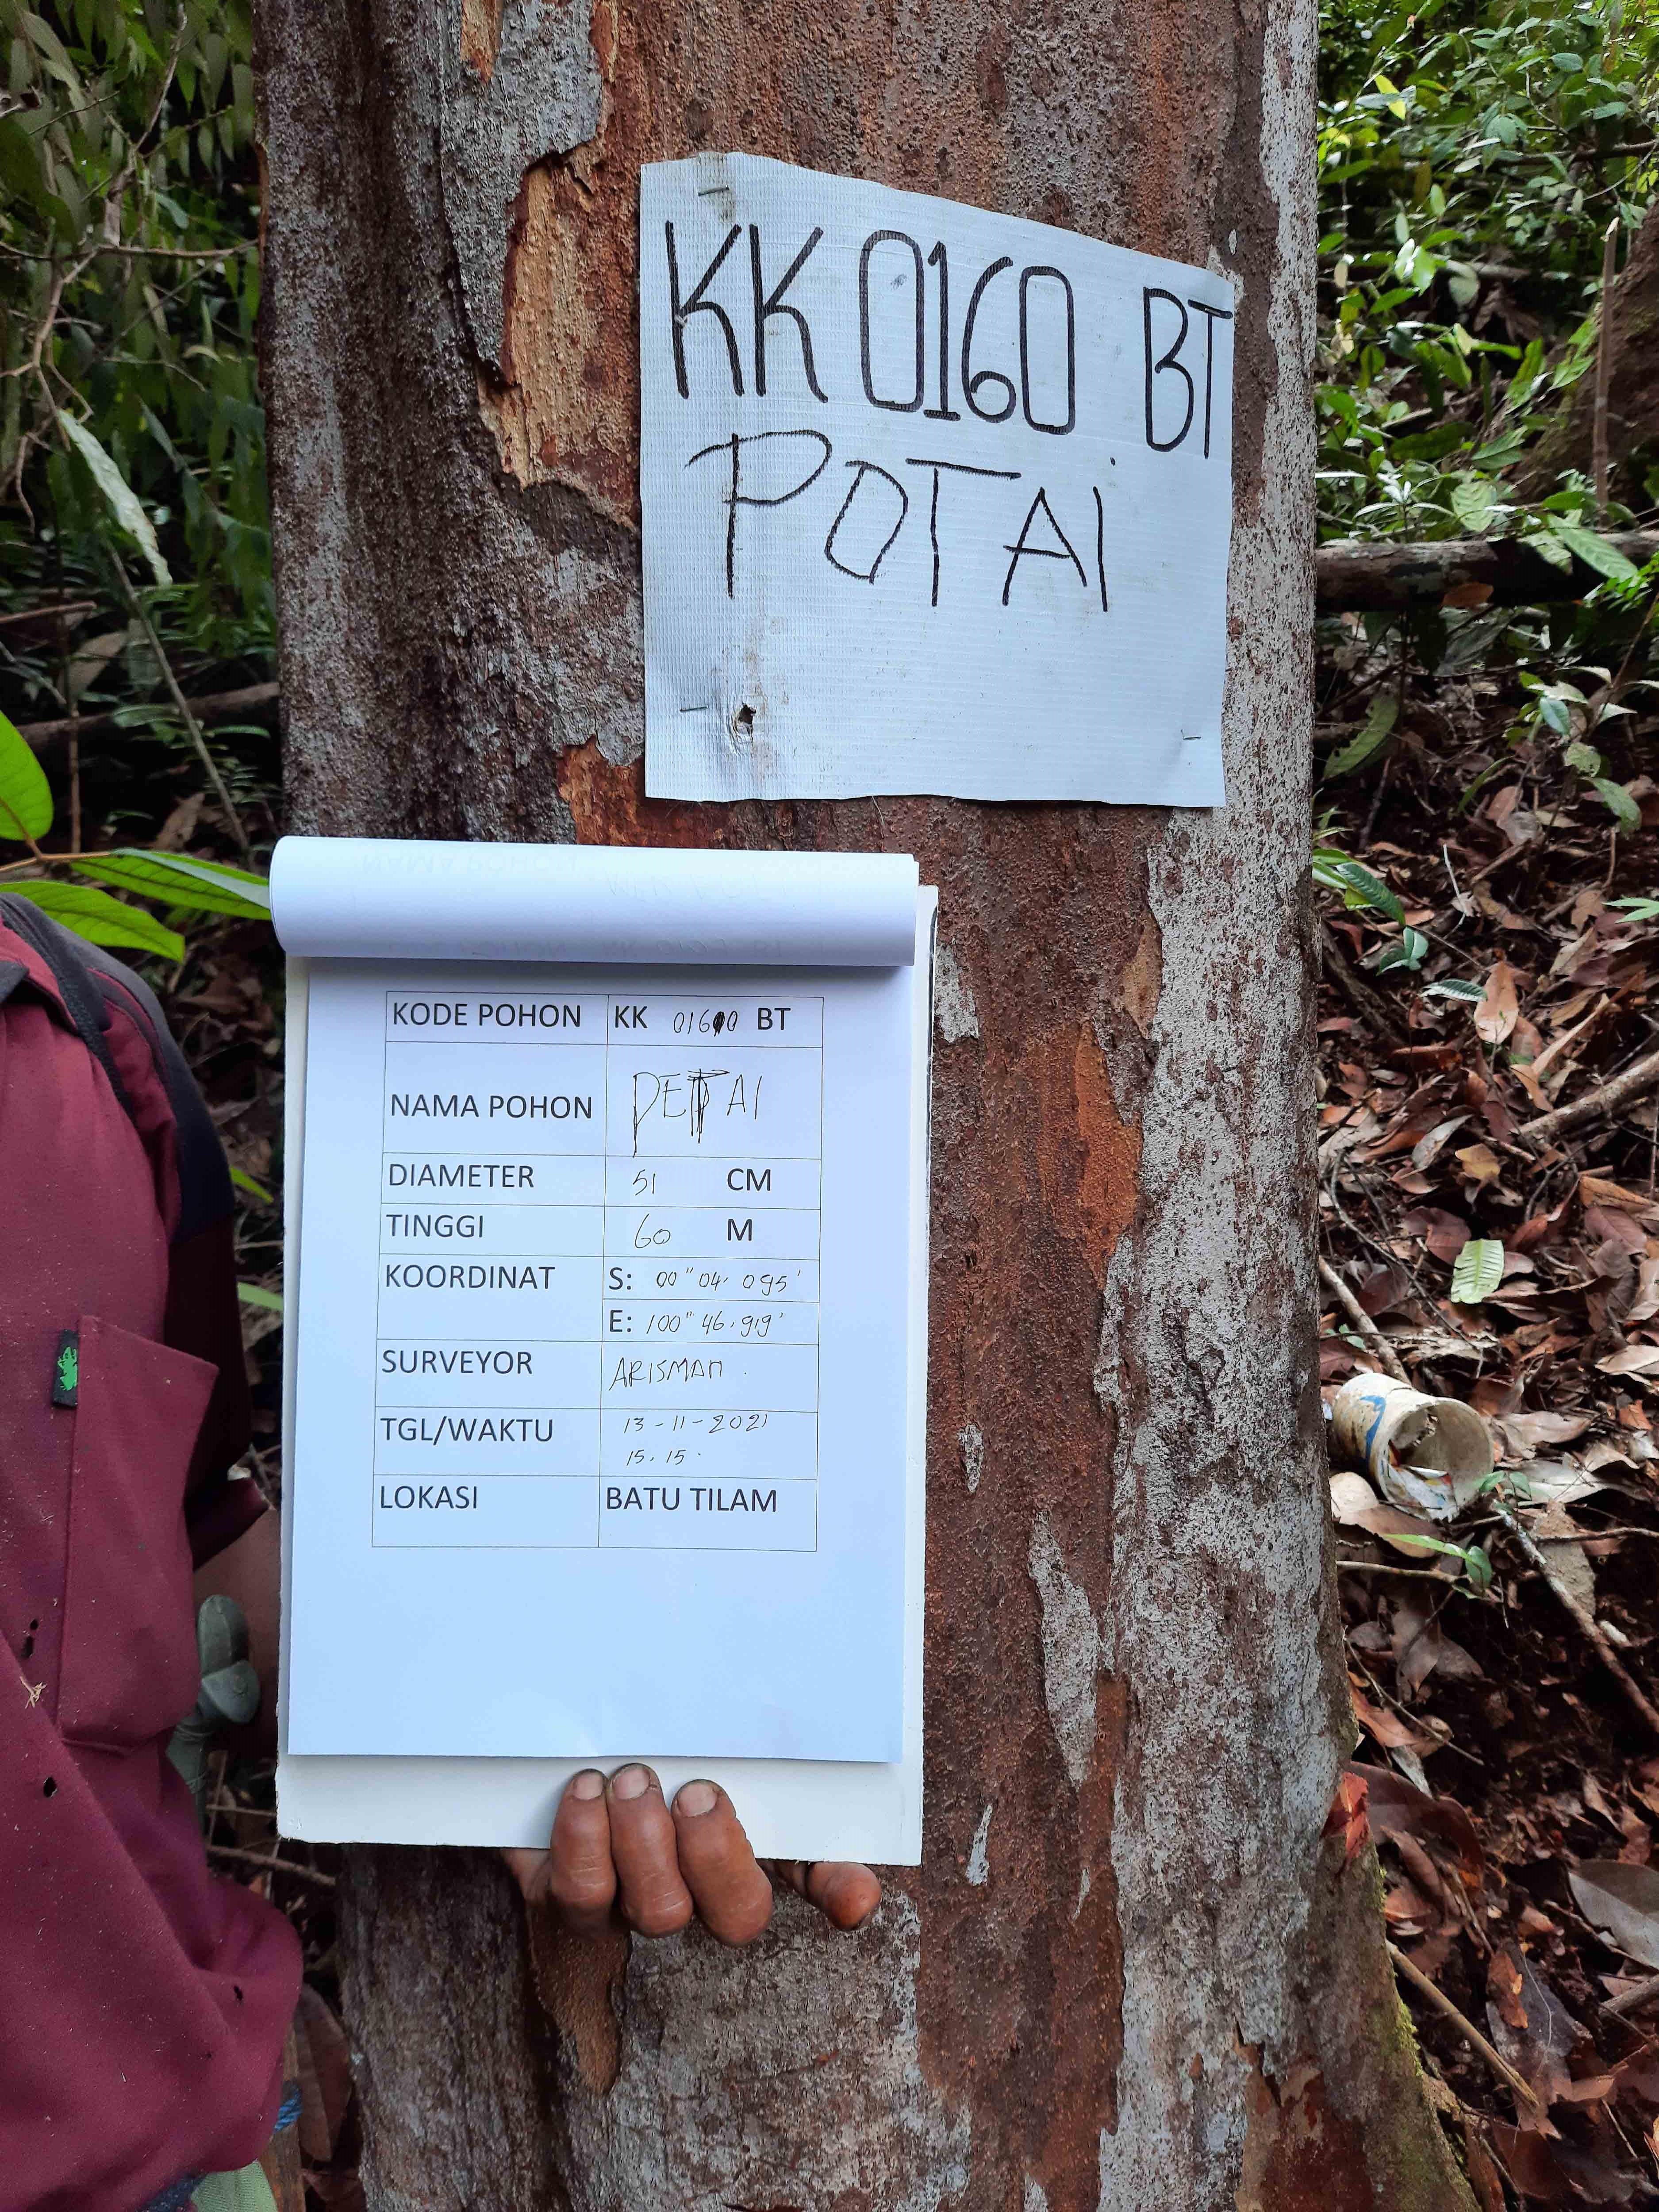 KK 0160 BT
POTAI
KODE POHON KK 0160 BT
NAMA POHON PETAI
DIAMETER 51 CM
TINGGI 60 M
KOORDINAT S: 00" 04. 095'
E: 100" 46.919'
SURVEYOR ARISMAN.
TGL/WAKTU 13-11-2021
15.15.
LOKASI BATU TILAM